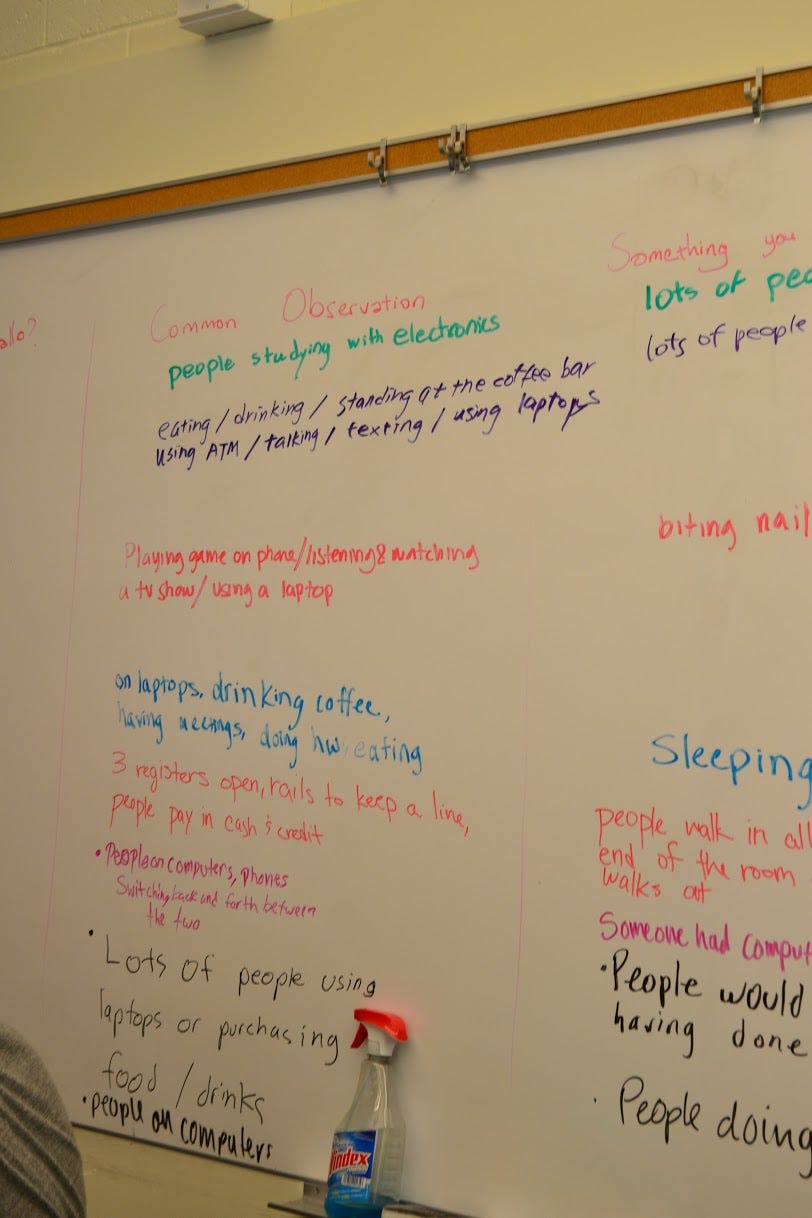 Common Observation
people studying with electronics
eating / drinking / standing at the coffee bar
using ATM / talking / texting / using laptops
Playing game on phone/listening & watching
a tv show/ using a laptop
on laptops, drinking coffee,
having meetings, doing hw, eating
3 registers open, rails to keep a line,
people pay in cash & credit
• People on computers, phones
Switching back and forth between
the two
• Lots of people using
laptops or purchasing
food / drinks
• people on computers
Something you
lots of peo
lots of people
biting nail
Sleeping
people walk in all
end of the room
walks out
Someone had comput
• People would
having done
• People doing
allo?
Windex